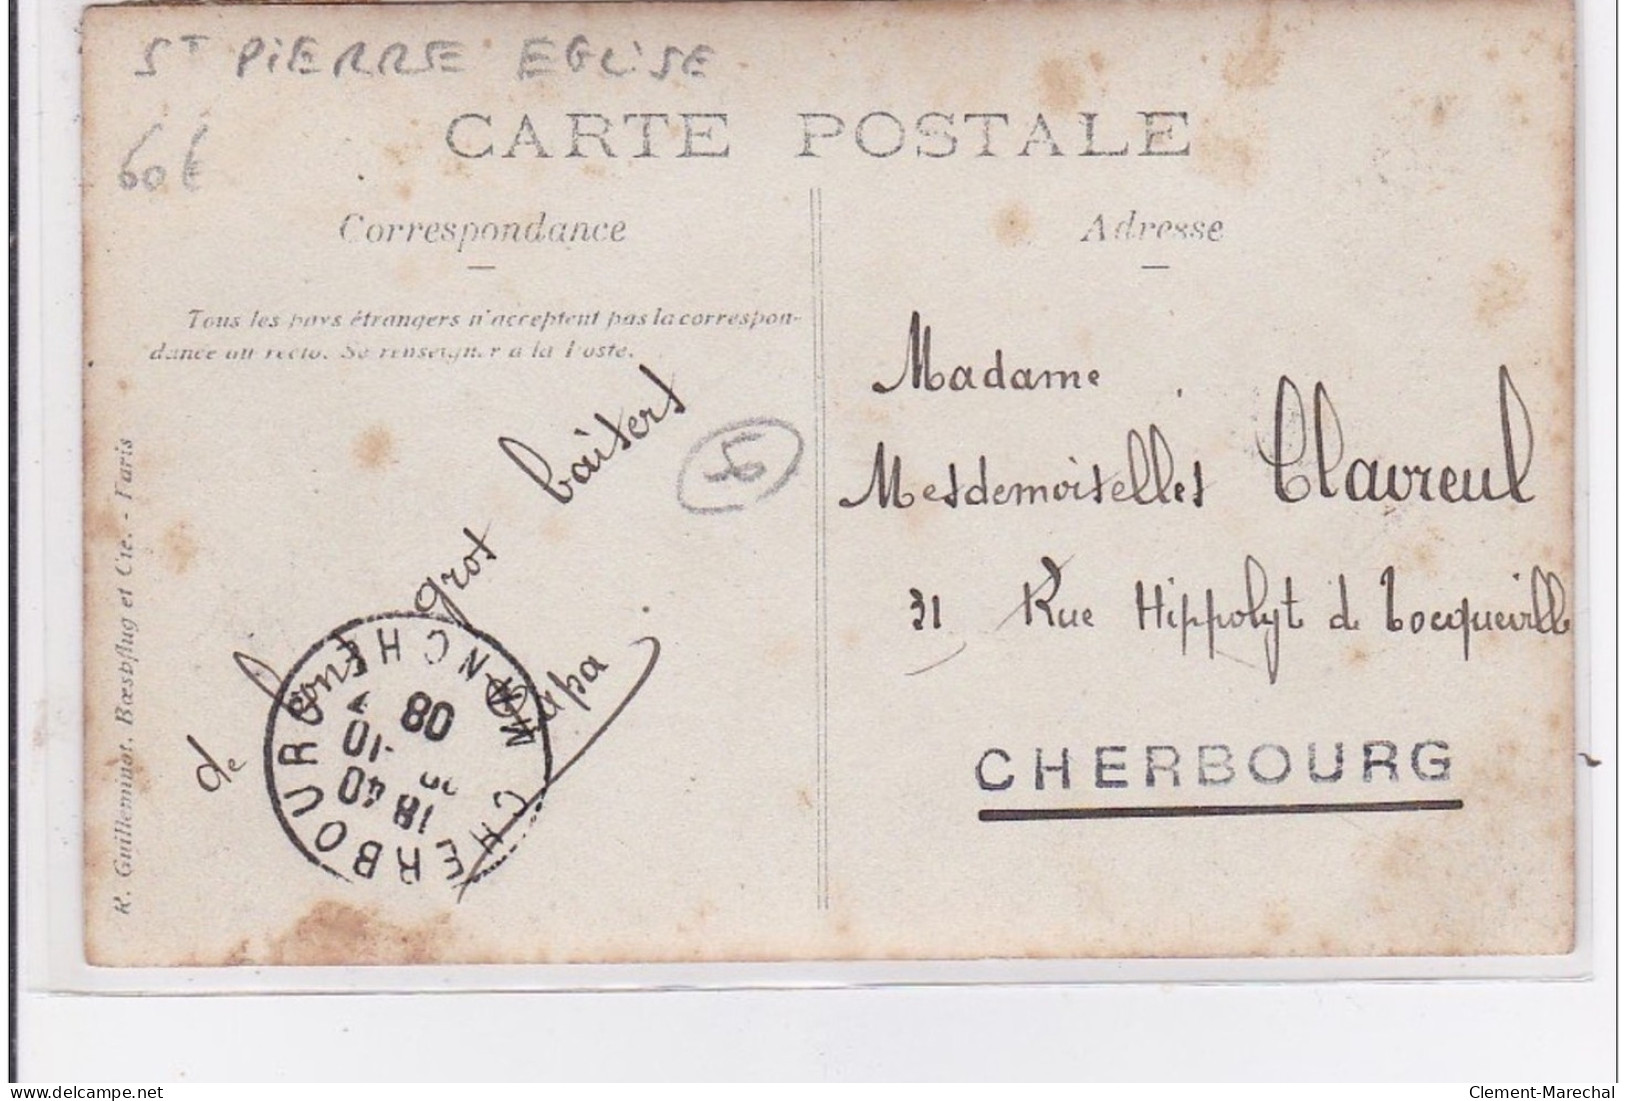 ST PIERRE EGLISE
60€
CARTE POSTALE
Correspondance
Tous les pays étrangers n'acceptent pas la correspon-
dance au recto. Se renseigner à la Poste.
de bons gros baisers
Papa
CHERBOURG MANCHE
18 40
10
08
R. Guillemnot, Bœspflug et Cie. - Paris
Adresse
Madame
Mesdemoiselles Clavreul
31 Rue Hippolyt de Tocqueville
CHERBOURG
delcampe.net
Clement-Marechal